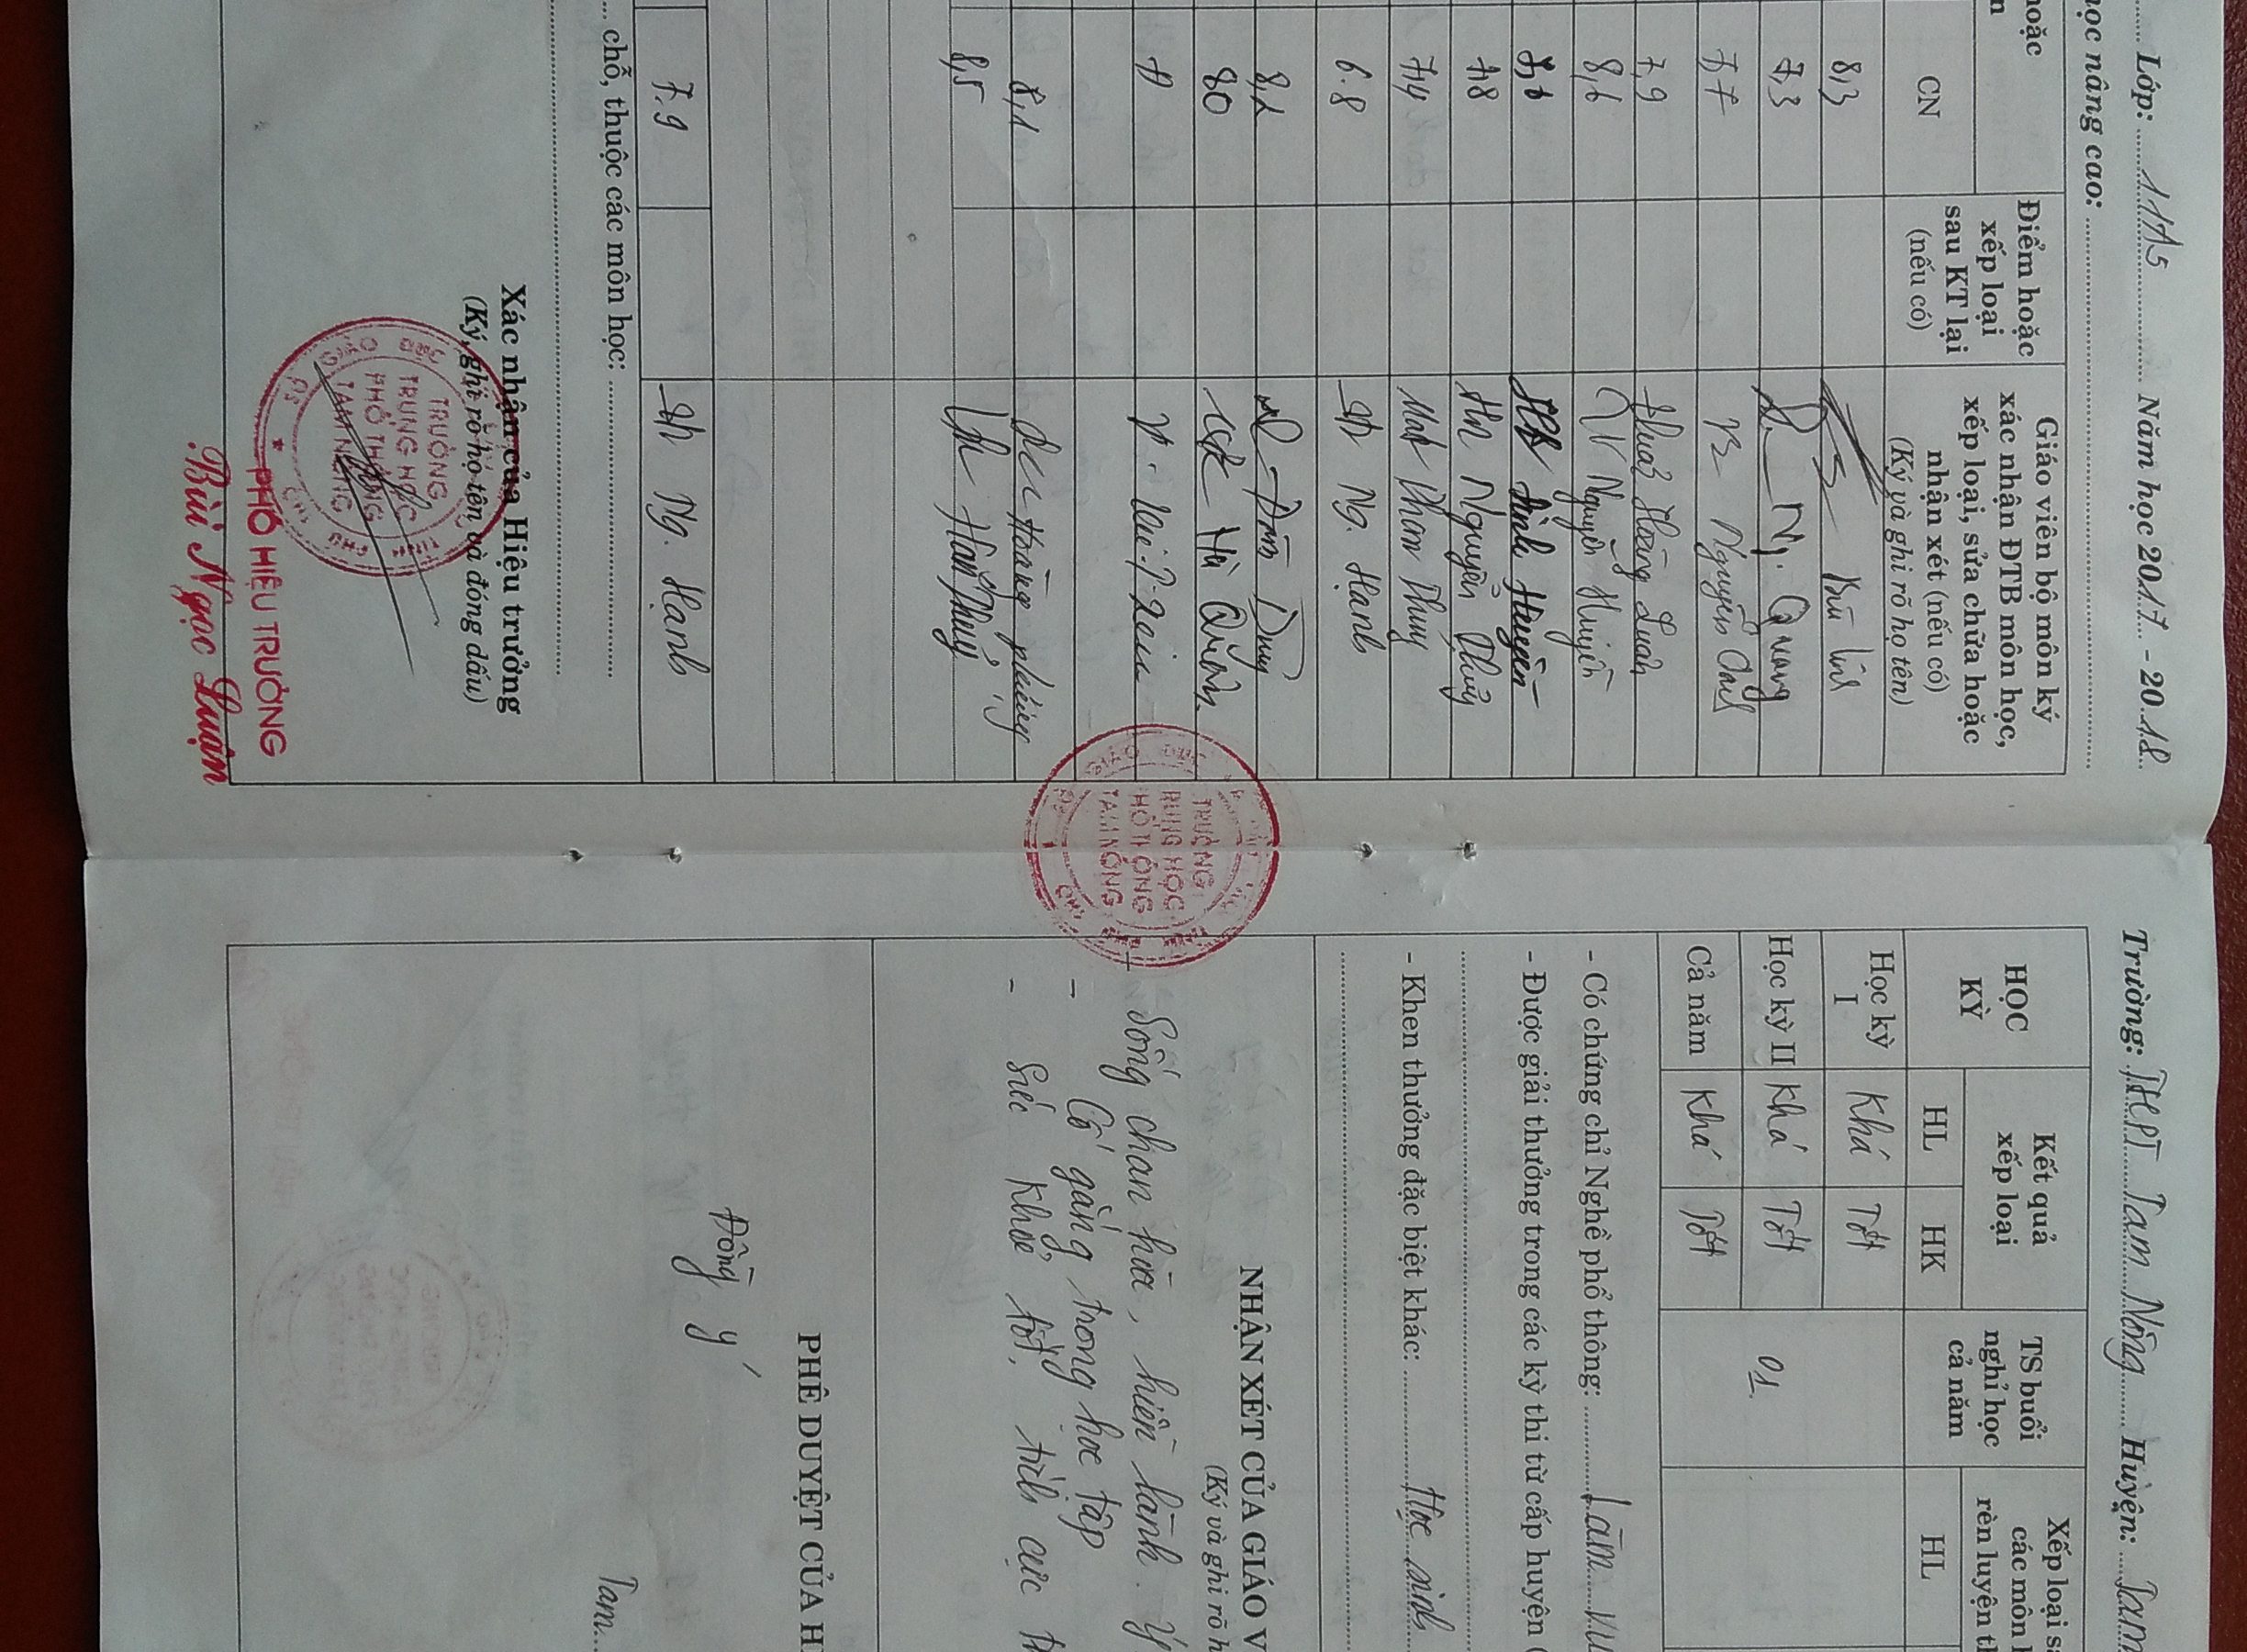 Lớp: 11A5 Năm học 2017 - 2018
học nâng cao:
hoặc
n
CN
Điểm hoặc
xếp loại
sau KT lại
(nếu có)
Giáo viên bộ môn ký
xác nhận ĐTB môn học,
xếp loại, sửa chữa hoặc
nhận xét (nếu có)
(Ký và ghi rõ họ tên)
8,3
7,3 Ng. Quang
7,7 Nguyễn
7,9 Hoàng Luân
8,6 Nguyễn Huyền
Đinh Huyền
7,8 Nguyễn Thủy
7,4 Phan Thủy
6.8 Ng. Hạnh
8,2 Duy
80 Hà
8,1 Hoàng
8,5
7.9 Ng. Hạnh
chỗ, thuộc các môn học:
Xác nhận của Hiệu trưởng
(Ký, ghi rõ họ tên và đóng dấu)
GIÁO DỤC
TRƯỜNG
TRUNG HỌC
PHỔ THÔNG
TAM NÔNG
PHÓ HIỆU TRƯỞNG
Bùi Ngọc Luận
GIÁO DỤC
TRƯỜNG
RUNG HỌC
TAM NÔNG
Trường: THPT Tam Nông Huyện: Tam
HỌC
KỲ
Kết quả
xếp loại
HL HK
TS buổi
nghỉ học
cả năm
Xếp loại s
các môn
rèn luyện t
HL
Học kỳ
I
Khá Tốt
Học kỳ II Khá Tốt
01
Cả năm Khá Tốt
- Có chứng chỉ Nghề phổ thông: Làm
- Được giải thưởng trong các kỳ thi từ cấp huyện
- Khen thưởng đặc biệt khác: Học sinh
NHẬN XÉT CỦA GIÁO V
(Ký và ghi rõ h
- Sống chan hòa, hiền lành. Ý
- Cố gắng trong học tập
- Sức khoẻ tốt, tích cực
PHÊ DUYỆT CỦA H
Đồng ý
Tam